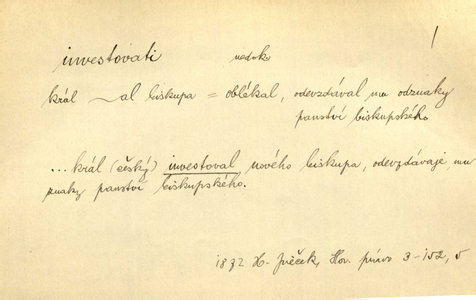 investovati nedok. 1
král ~al biskupa = oblékal, odevzdával mu odznaky
panství biskupského
... král (český) investoval nového biskupa, odevzdávaje mu
znaky panství biskupského.
H. Jireček, Slov. právo 3-152, 5